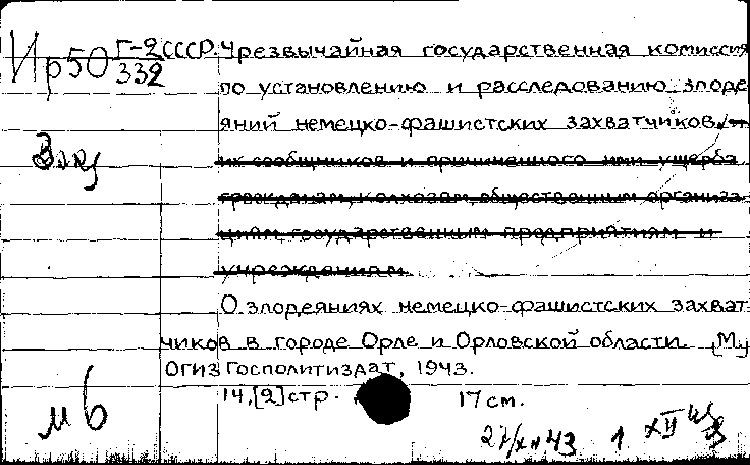 Ир50 Г-2 СССР. Чрезвычайная государственная комиссия
332 по установлению и расследованию злоде
яний немецко-фашистских захватчиков, и
их сообщников и причиненного ими ущерба
гражданам, колхозам, общественным организа
циям, государственным предприятиям и
учреждениям
О злодеяниях немецко-фашистских захват
чиков в городе Орле и Орловской области. [М]
ОГИЗ Госполитиздат, 1943.
14,[2] стр. 17 см.
м 6